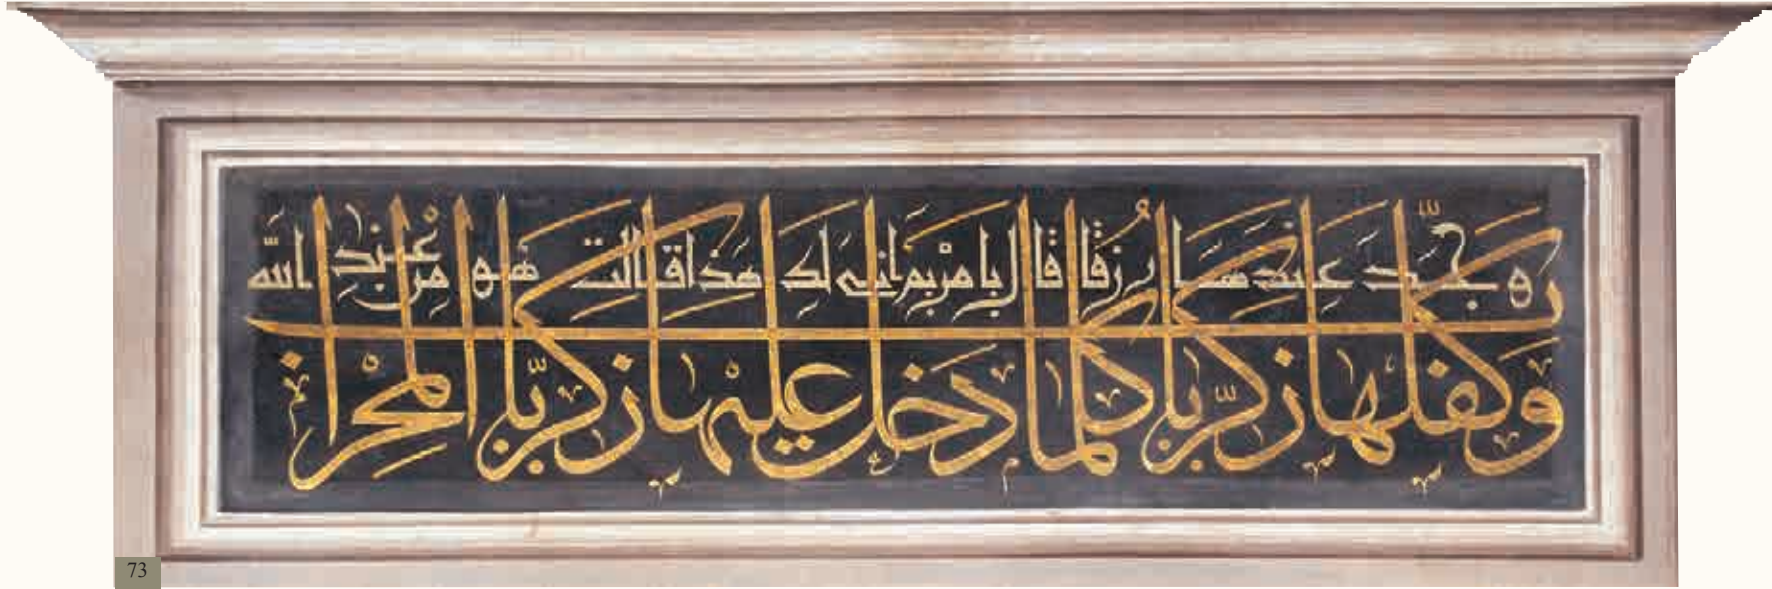 وكفلها زكريا كلما دخل عليها زكريا المحراب
وجد عندها رزقا قال يا مريم انى لك هذا قالت هو من عند الله
73